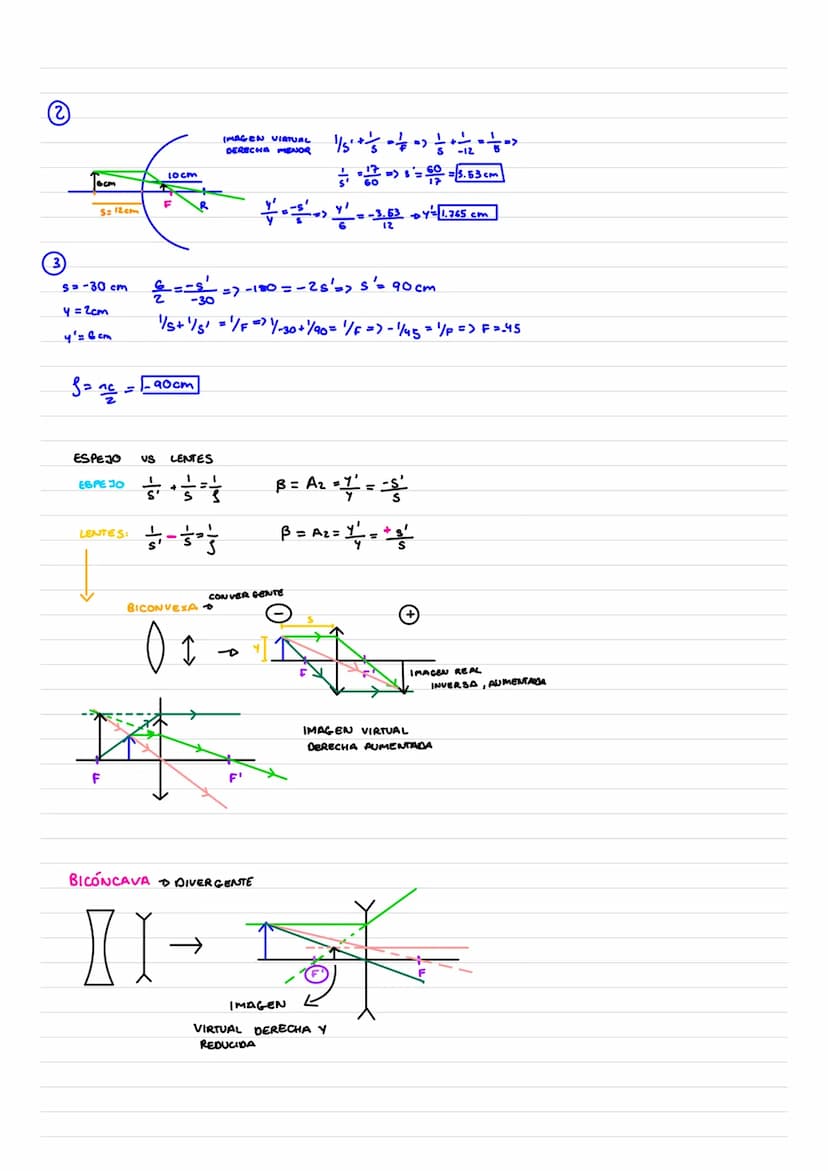 2
IMAGEN VIRTUAL
DERECHA MENOR
1/s' + 1/s = 1/F => 1/s + 1/-12 = 1/5 =>
1/s' = 17/60 => s' = 60/17 = 3.53 cm
6cm
10cm
s = 12cm
F
R
y'/y = -s'/s => y'/6 = -3.53/12 → y' = 1.765 cm
3
s = -30 cm
6/2 = -s'/-30 => -180 = -2s' => s' = 90 cm
y = 2cm
y' = 6 cm
1/s + 1/s' = 1/F => 1/-30 + 1/90 = 1/F => -1/45 = 1/F => F = -45
= -90cm
ESPEJO VS LENTES
ESPEJO 1/s' + 1/s = 1/f
β = A2 = y'/y = -s'/s
LENTES: 1/s' - 1/s = 1/f
β = A2 = y'/y = +s'/s
BICONVEXA → CONVERGENTE
- +
s
y
F
F'
IMAGEN REAL
INVERSA, AUMENTADA
IMAGEN VIRTUAL
DERECHA AUMENTADA
F
F'
BICÓNCAVA → DIVERGENTE
F'
F
IMAGEN
VIRTUAL DERECHA Y
REDUCIDA